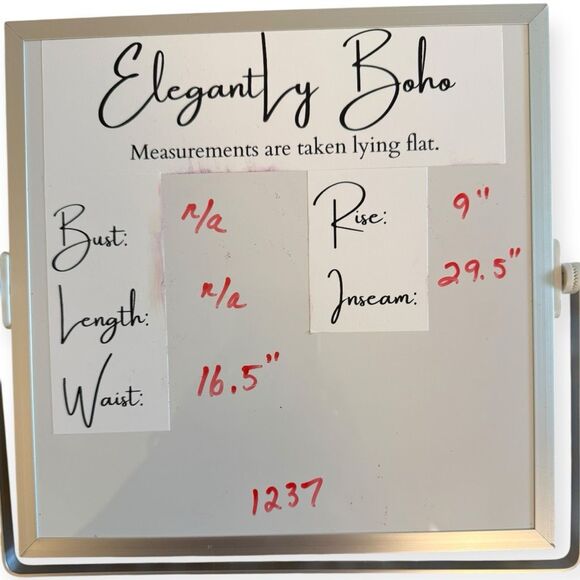 Elegantly Boho
Measurements are taken lying flat.
Bust: n/a
Rise: 9"
Length: n/a
Inseam: 29.5"
Waist: 16.5"
1237